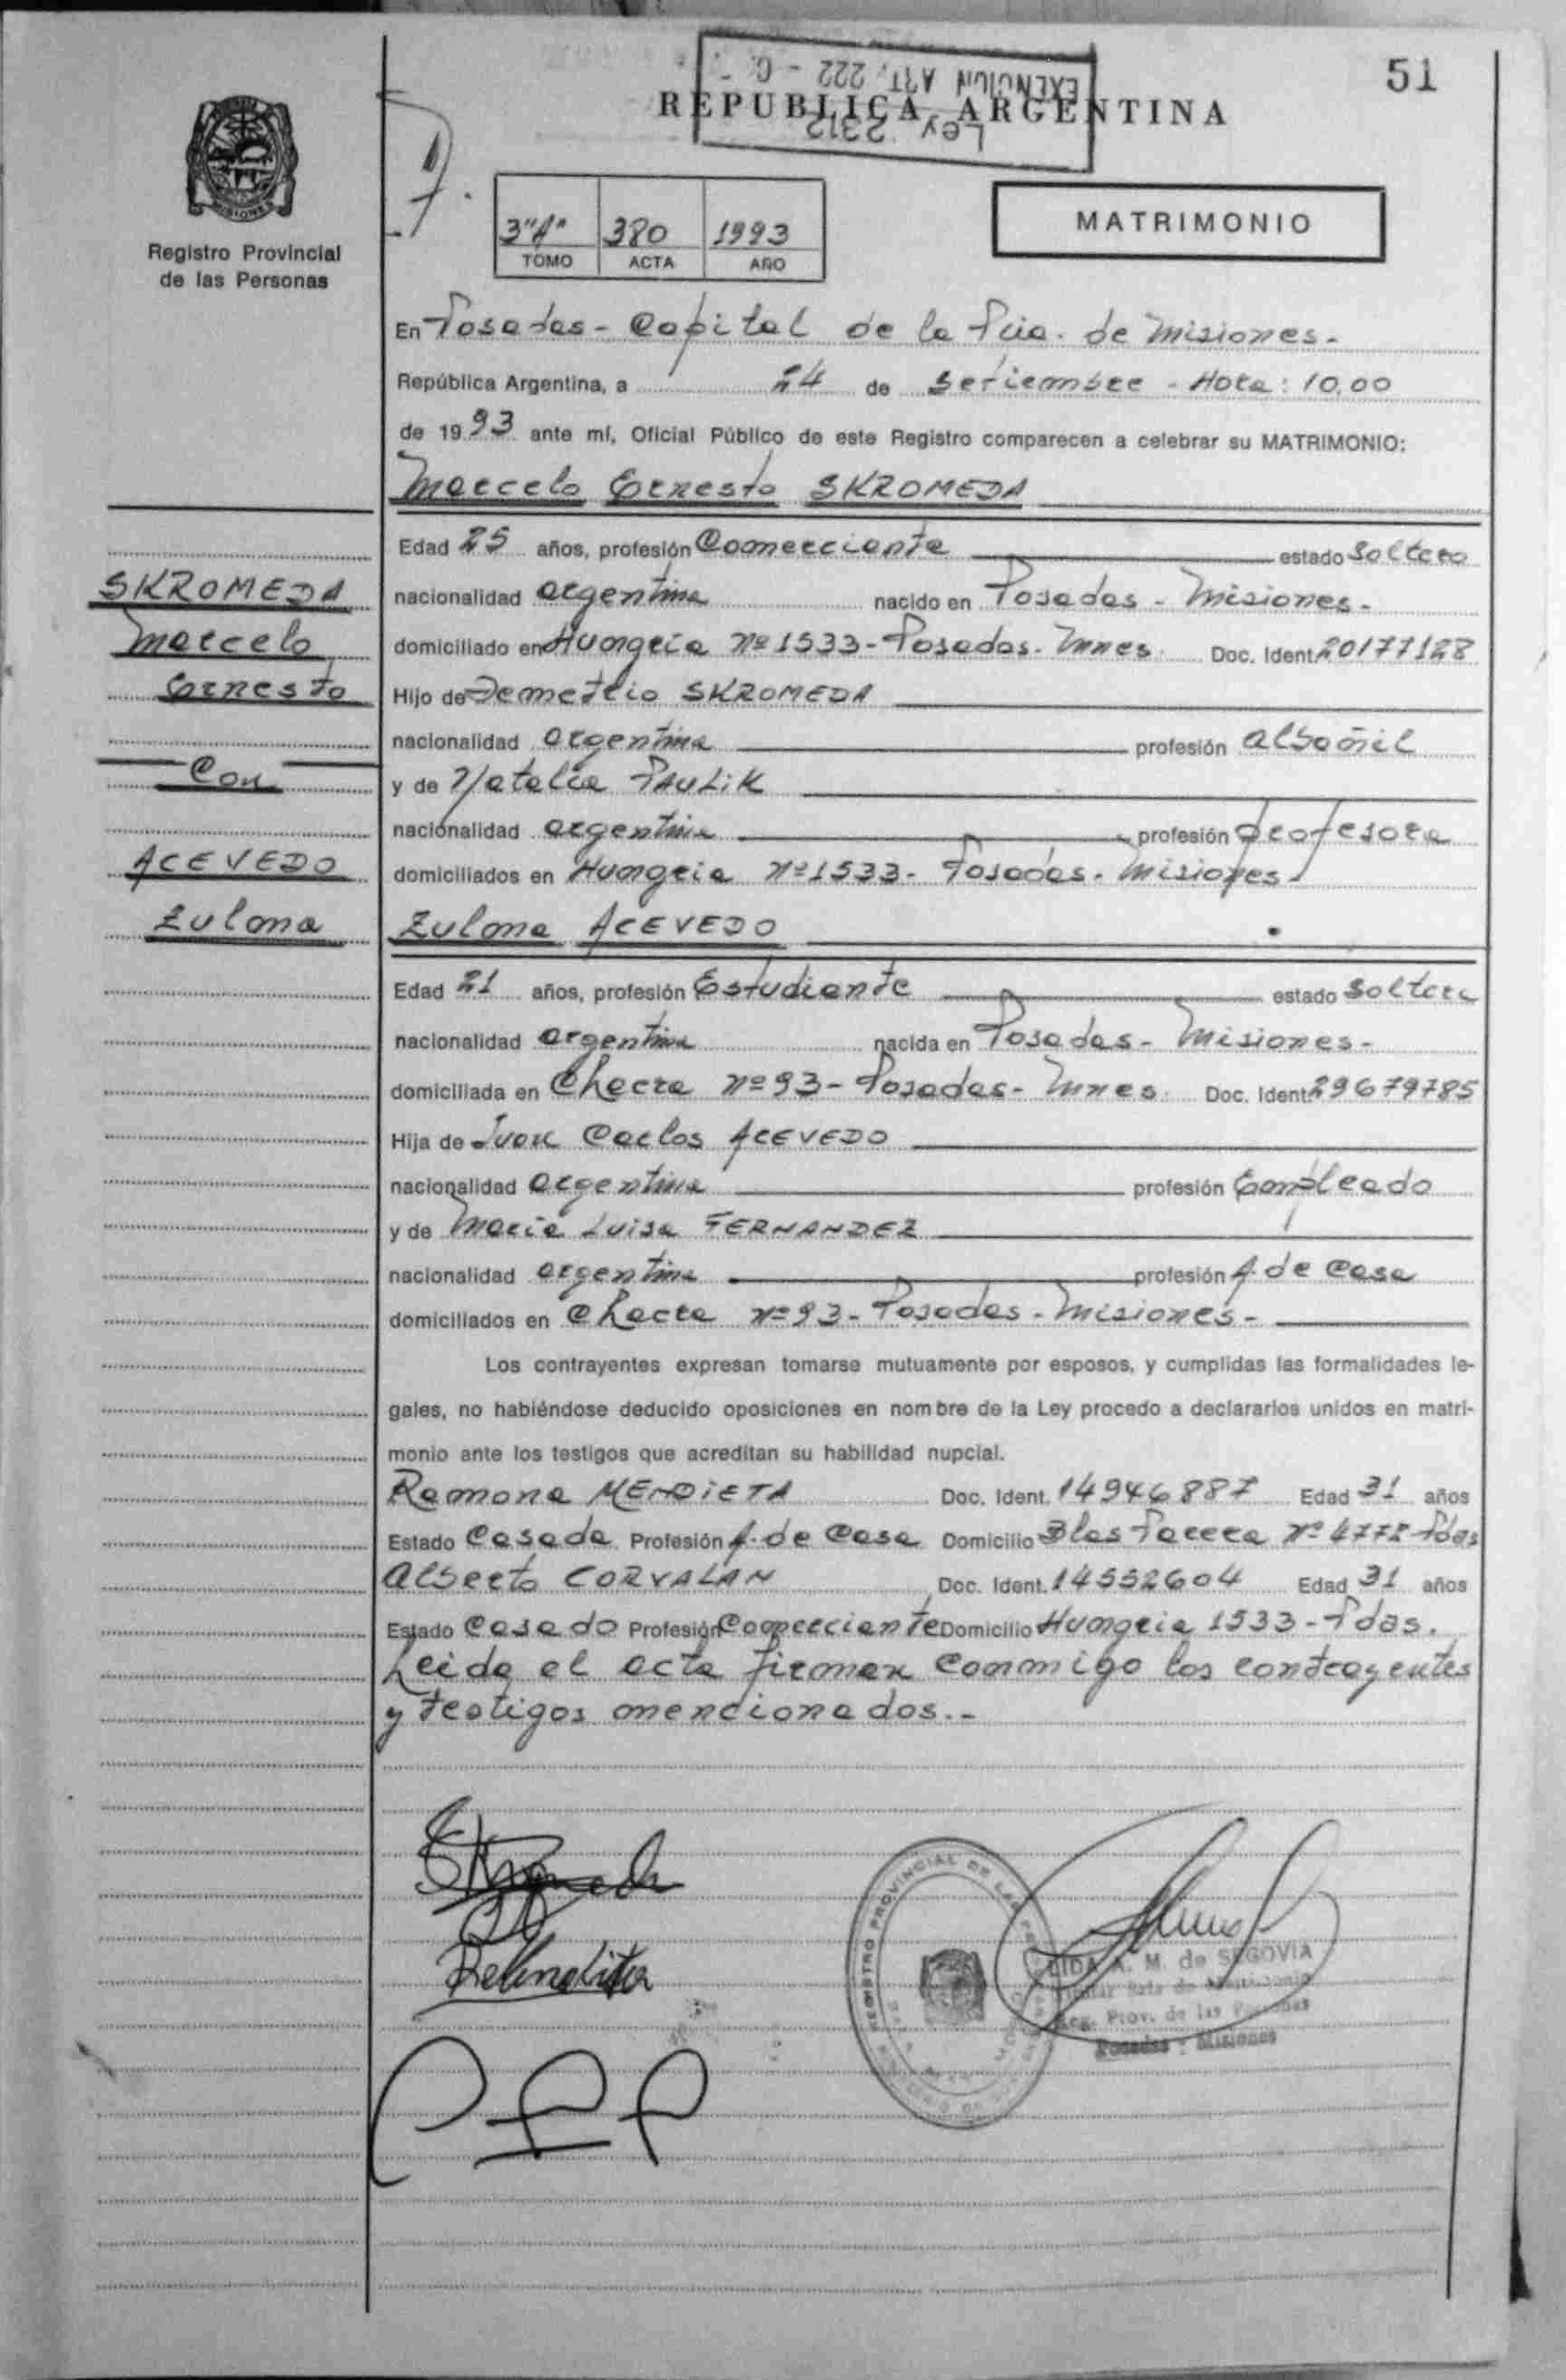 51
EXENCION ART. 222 - C.
Ley 2312
REPUBLICA ARGENTINA
MISIONES
Registro Provincial
de las Personas
3"A" 380 1993
TOMO ACTA AÑO
MATRIMONIO
En Posadas - Capital de la Pcia. de Misiones.
República Argentina, a 24 de Setiembre - Hora: 10,00
de 1993 ante mí, Oficial Público de este Registro comparecen a celebrar su MATRIMONIO:
Marcelo Ernesto SKROMEDA
SKROMEDA
Marcelo
Ernesto
Con
ACEVEDO
Zulma
Edad 25 años, profesión Comerciante estado Soltero
nacionalidad argentina nacido en Posadas - Misiones.
domiciliado en Hungría Nº 1533 - Posadas - Mnes. Doc. Ident. 20177128
Hijo de Demetrio SKROMEDA
nacionalidad argentina profesión albañil
y de Natalia PAULIK
nacionalidad argentina profesión profesora
domiciliados en Hungria Nº 1533 - Posadas - Misiones
Zulma ACEVEDO
Edad 21 años, profesión Estudiante estado Soltera
nacionalidad argentina nacida en Posadas - Misiones -
domiciliada en Chacra Nº 93 - Posadas - Mnes. Doc. Ident. 29679785
Hija de Juan Carlos ACEVEDO
nacionalidad argentina profesión Empleado
y de Maria Luisa FERNANDEZ
nacionalidad argentina profesión A. de Casa
domiciliados en Chacra Nº 93 - Posadas - Misiones -
Los contrayentes expresan tomarse mutuamente por esposos, y cumplidas las formalidades le-
gales, no habiéndose deducido oposiciones en nombre de la Ley procedo a declararlos unidos en matri-
monio ante los testigos que acreditan su habilidad nupcial.
Ramona MENDIETA Doc. Ident. 14946887 Edad 31 años
Estado Casada Profesión A. de Casa Domicilio Blas Parera Nº 4772 Pdas
Alberto CORVALAN Doc. Ident. 14552604 Edad 31 años
Estado Casado Profesión Comerciante Domicilio Hungria 1533 - Pdas.
Leida el acta firman conmigo los contrayentes
y testigos mencionados.-
REGISTRO PROVINCIAL DE LAS PERSONAS
LIDA A. M. de SEGOVIA
Reg. Prov. de las Personas
Posadas - Misiones